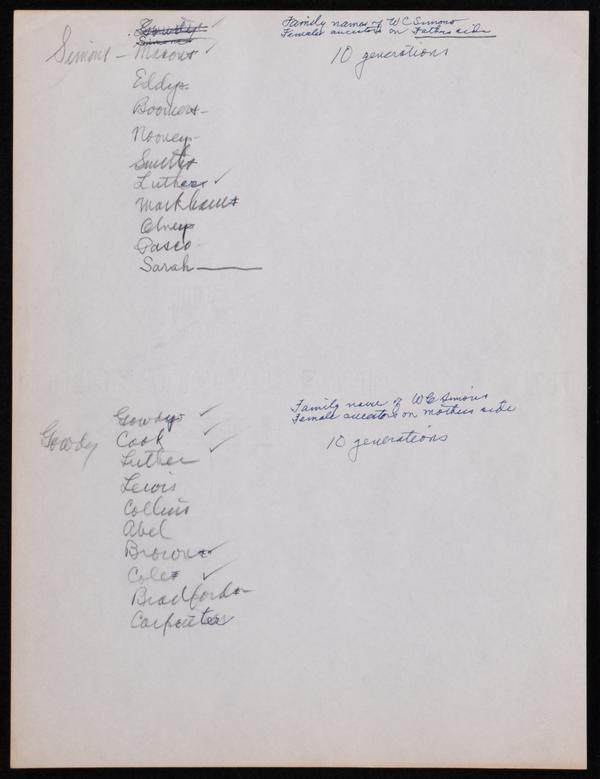 Gowdy ✓
Simons
Simons — Masons ✓
Eddys
Boomers
Nooney
Smiths
Luthers ✓
Markhams
Olneys
Pasco
Sarah ———
Family names of W C Simons
Female ancestors on Fathers side
10 generations
Gowdys ✓
Gowdy Cook ✓
Luther ✓
Lewis
Collins
Abel
Browns ✓
Coles ✓
Bradfords
Carpenter
Family name of W C Simons
Female ancestors on mothers side
10 generations